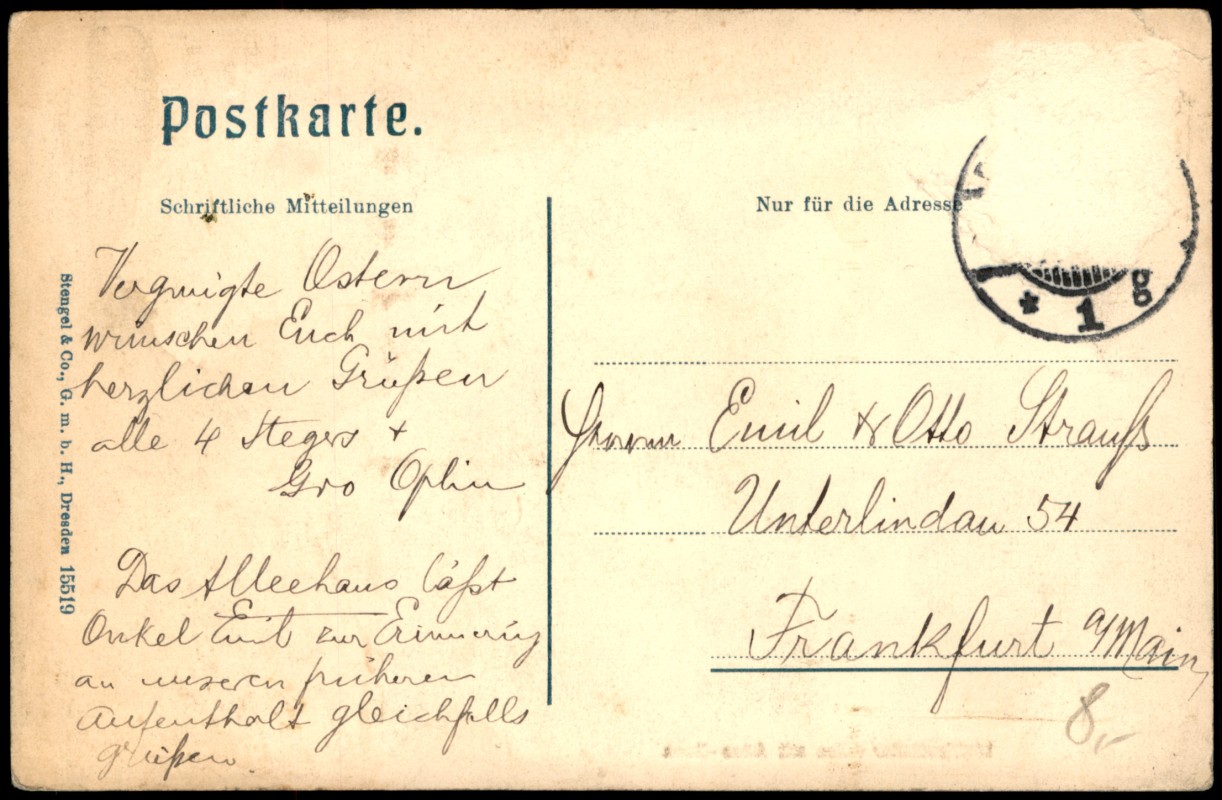 Postkarte.
Schriftliche Mitteilungen
Nur für die Adresse
* 1 g
Vergnügte Ostern
wünschen Euch mit
herzlichen Grüßen
alle 4 Stegers +
Stengel & Co., G. m. b. H., Dresden 15519
Das Alleehaus läßt
Onkel Emil zur Erinnerung
an unseren früheren
Aufenthalt gleichfalls
grüßen.
Herrn Emil & Otto Strauß
Unterlindau 54
Frankfurt a/Main,
8,-